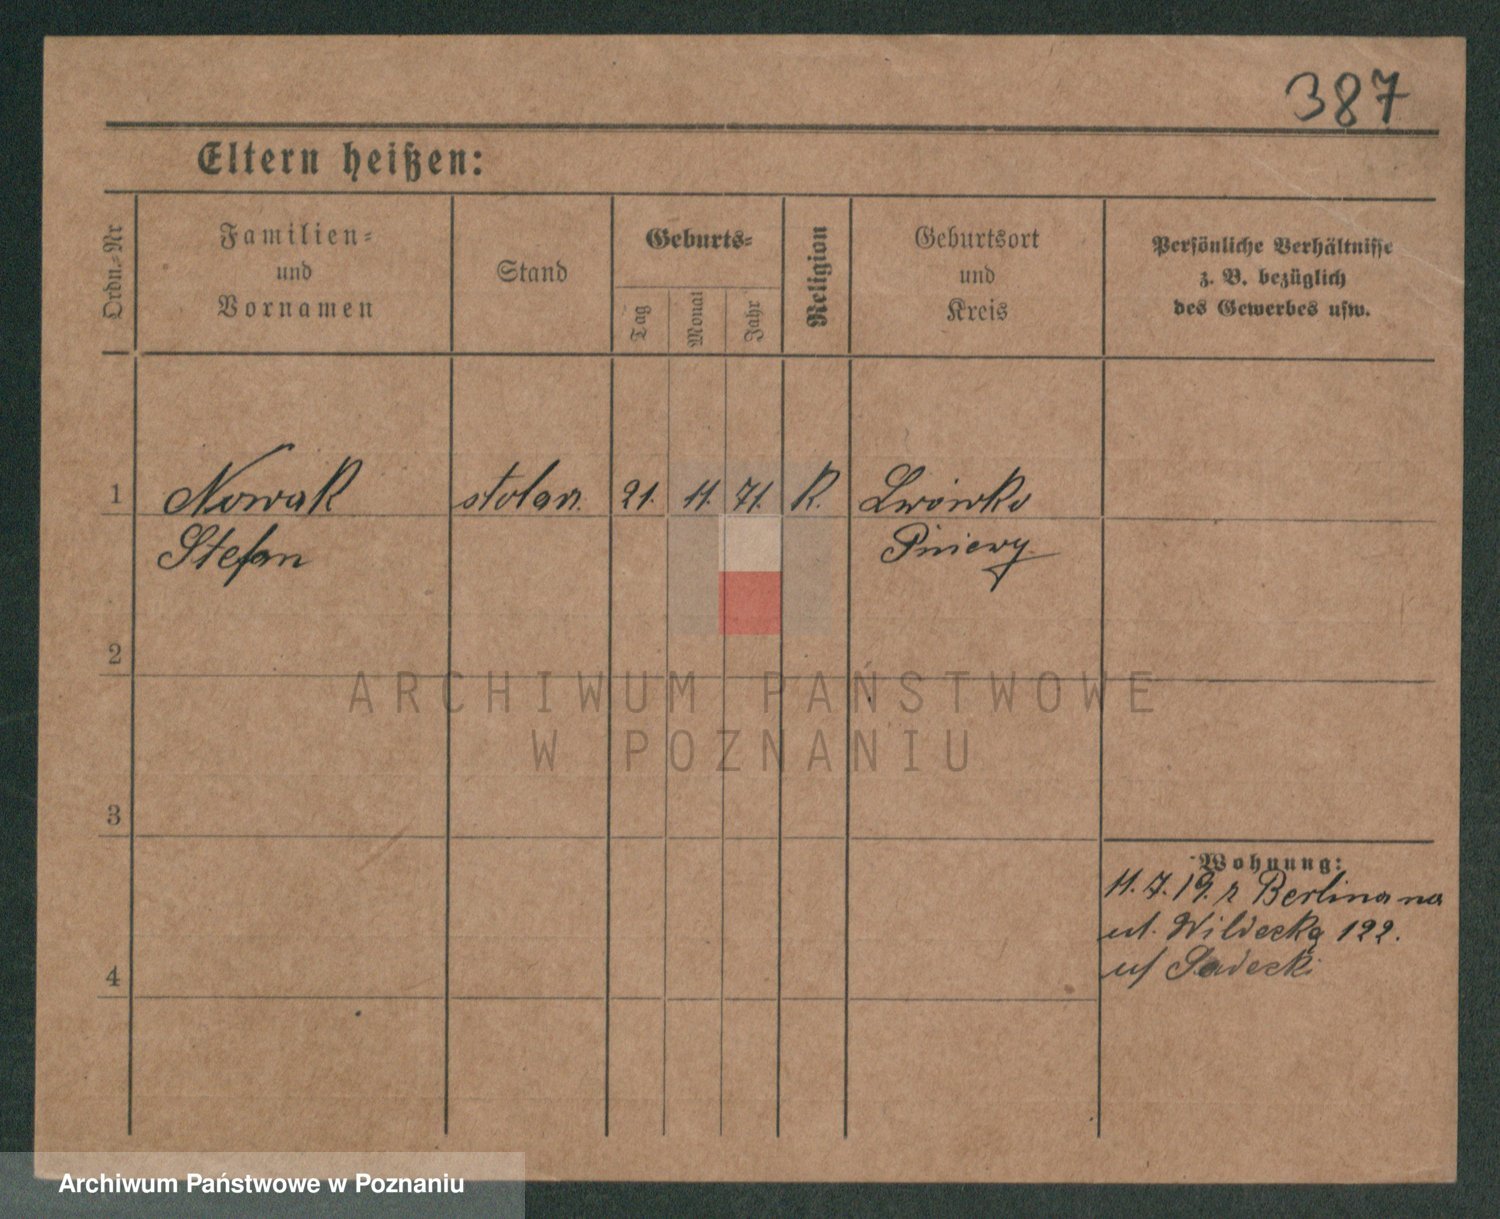 387
Eltern heißen:
Ordn.-Nr
Familien-
und
Vornamen
Stand
Geburts-
Tag
Monat
Jahr
Religion
Geburtsort
und
Kreis
Persönliche Verhältnisse
z. B. bezüglich
des Gewerbes usw.
1 Nowak stolarz. 21. 11. 71. K. Lwówko
Stefan Pniewy
2
ARCHIWUM PAŃSTWOWE
W POZNANIU
3
Wohnung:
11. 7. 19. z Berlina na
ul. Wildecką 122.
u/ Sadecki
4
Archiwum Państwowe w Poznaniu